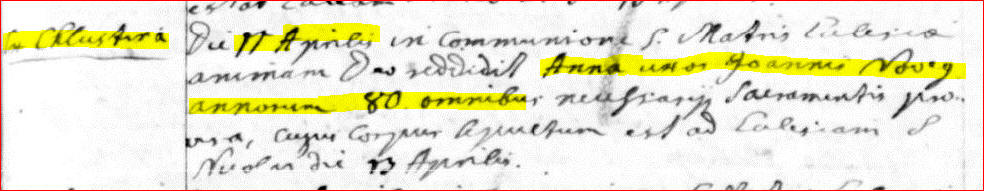 est ad
Ex Chlustina
Die 11 Aprilis in Communione S. Matris Ecclesiæ
animam Deo reddidit Anna uxor Joannis Novey
annorum 80 omnibus necessarijs Sacramentis pro-
visa, cujus Corpus sepultum est ad Ecclesiam S
Nicolai die 13 Aprilis.